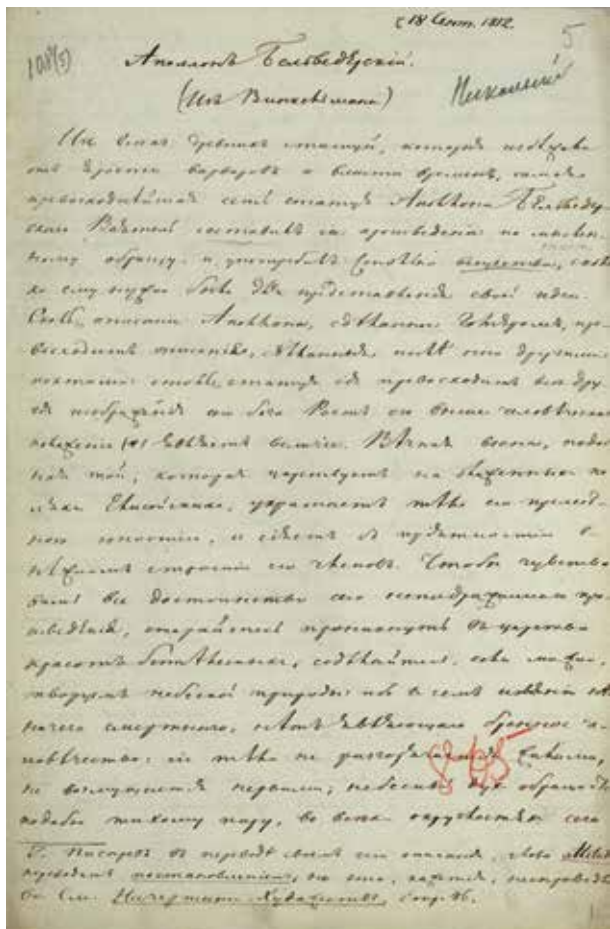 18 Сент. 1812.
5
108(5)
Аполлонъ Бельведерскій.
(Изъ Винкельмана)
Никольскій
Изъ всѣхъ древнихъ статуй, которыя избѣгли
отъ ярости варваровъ и власти времени, самая
превосходнѣйшая есть статуя Аполлона Бельведер-
скаго Ваятель составилъ сіе произведеніе по мыслен-
ному образцу и употребилъ вещества, сколь
ко ему нужно было для представленія своей идеи.
Сколь описаніе Аполлона, сдѣланное Гомеромъ, пре-
восходитъ описанія, сдѣланныя послѣ его другими
поэтами: столь статуя сія превосходитъ всѣ дру-
гія изображенія сего бога Ростъ его выше человѣческаго
положеніе (*) являетъ величіе. Вѣчная весна, подоб-
ная той, которая царствуетъ на блаженныхъ по-
ляхъ Елисейскихъ, украшаетъ тѣло его прелест-
ною юностію, и сіяетъ съ пріятностію
въ строеніи его членовъ. Чтобы чувство
вать всѣ достоинства сего неподражаемаго про-
изведенія, старайтесь проникнуть въ царство
красотъ безтѣлесныхъ, содѣлайтесь, если можно,
творцемъ небесной природы: ибо въ семъ нѣтъ
ничего смертнаго, нѣтъ являющаго бренное че-
ловѣчество: сіе тѣло не жилами,
не возмущается нервами; небесный духъ
подобно тихому пару, во всѣхъ окружностяхъ сего
Г. Писаревъ въ переводѣ своемъ сего описанія, слово
переводитъ постановленіемъ, но это, кажется, несправедли-
во См. Начертаніе Художествъ, стр. 86.